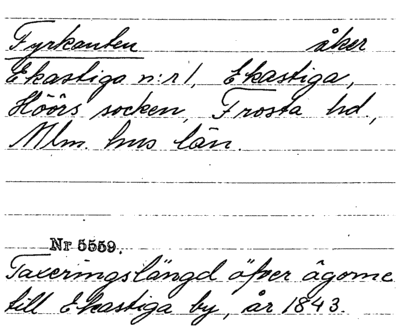 Fyrkanten åker
Ekastiga n:r 1, Ekastiga,
Höörs socken, Frosta hd,
Mlm. hus län.
Nr 5559.
Taxeringslängd öfver ägorne
till Ekastiga by, år 1843.